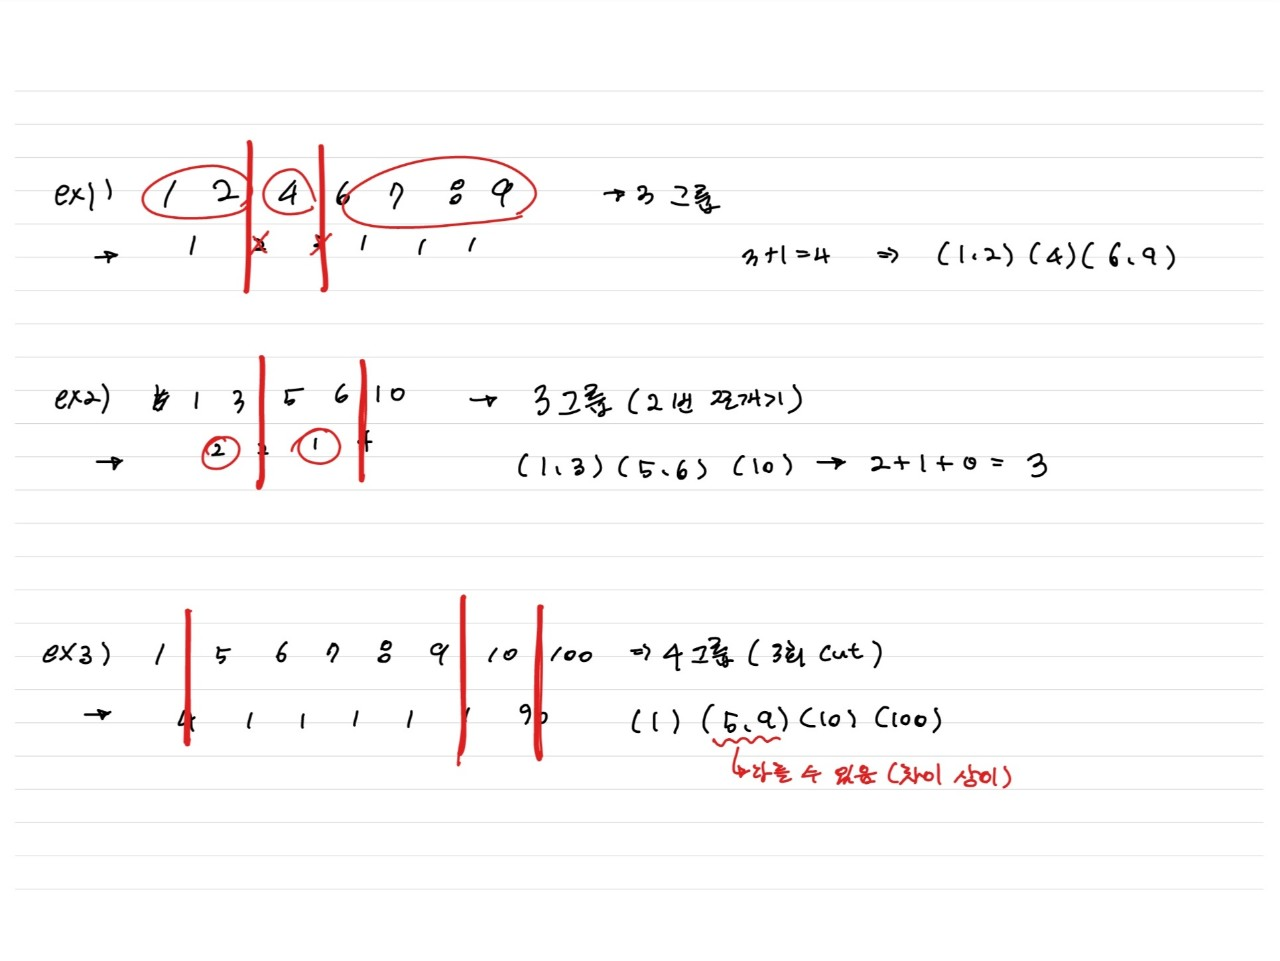 ex1) 1 2 4 6 7 8 9 → 3 그룹
→ 1 2 2 1 1 1 3+1=4 ⇒ (1,2) (4) (6,9)
ex2) 1 3 5 6 10 → 3그룹 (2번 쪼개기)
→ 2 2 1 4 (1,3) (5,6) (10) → 2+1+0 = 3
ex3) 1 5 6 7 8 9 10 100 ⇒ 4그룹 (3회 cut)
→ 4 1 1 1 1 1 90 (1) (5,9) (10) (100)
↳다를 수 있음 (차이 상이)